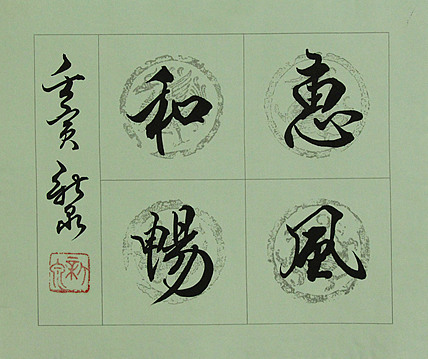 惠風
和暢
壬寅 新泉